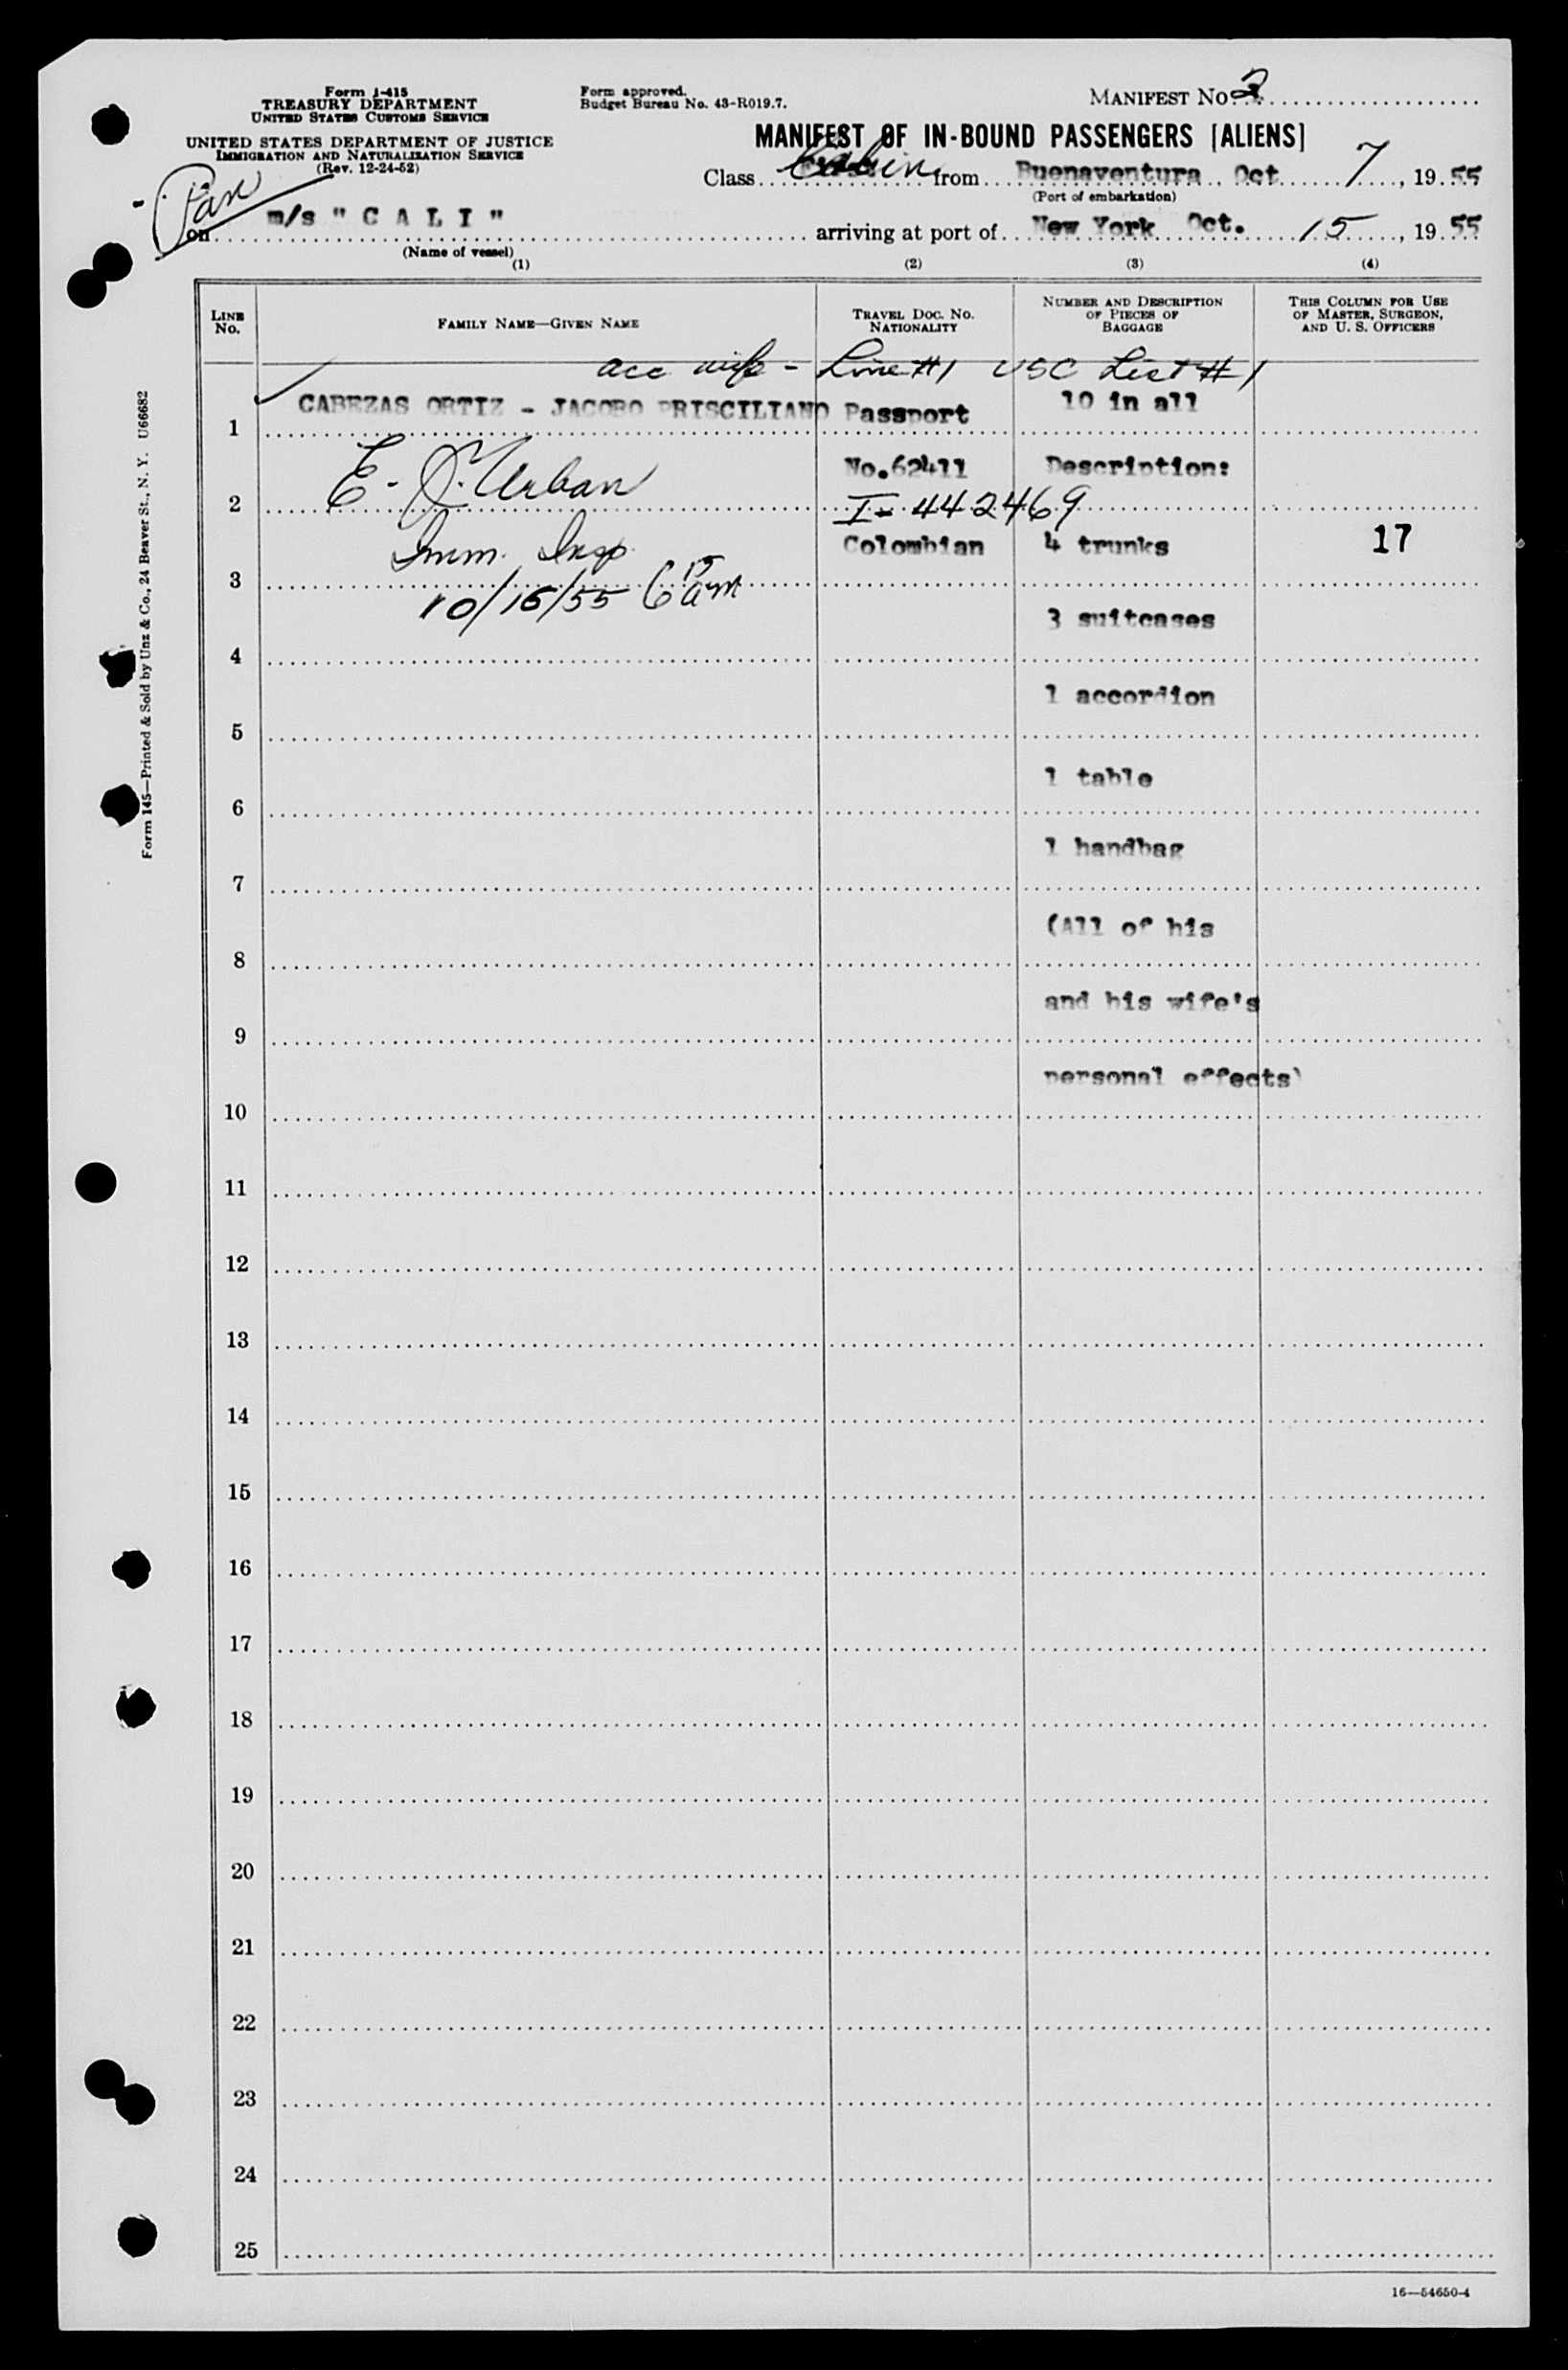 Form I-415
TREASURY DEPARTMENT
UNITED STATES CUSTOMS SERVICE
UNITED STATES DEPARTMENT OF JUSTICE
IMMIGRATION AND NATURALIZATION SERVICE
(Rev. 12-24-52)
Form approved.
Budget Bureau No. 43-R019.7.
MANIFEST No. 2
MANIFEST OF IN-BOUND PASSENGERS [ALIENS]
Class Cabin from Buenaventura Oct 7, 19 55
(Port of embarkation)
Pan
on m/s " C A L I " arriving at port of New York Oct. 15, 19 55
(Name of vessel)
(1) (2) (3) (4)
LINE No.
FAMILY NAME—GIVEN NAME
TRAVEL DOC. NO. NATIONALITY
NUMBER AND DESCRIPTION OF PIECES OF BAGGAGE
THIS COLUMN FOR USE OF MASTER, SURGEON, AND U. S. OFFICERS
acc wife - Line #1 USC List #1
1 CABEZAS ORTIZ - JACOBO PRISCILIANO Passport 10 in all
No.62411 Description:
2 E. J. Urban I-442469
Imm. Insp. Colombian 4 trunks 17
3 10/15/55 6 15 am
3 suitcases
4
1 accordion
5
1 table
6
1 handbag
7
(All of his
8
and his wife's
9
personal effects)
10
11
12
13
14
15
16
17
18
19
20
21
22
23
24
25
16—54650-4
Form 145—Printed & Sold by Unz & Co., 24 Beaver St., N. Y. U66682